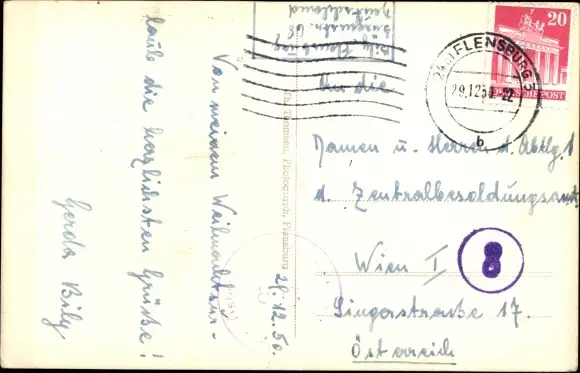 Bily, Flensburg
Deutschland
29. 12. 50.
Von meinem Weihnachtsur-
laub die herzlichsten Grüße!
Gerda Bily
Th. Thomsen, Photograph, Flensburg
20
DEUTSCHE POST
FLENSBURG
29.12.50-22
b
An die
Damen u. Herren d. Abtlg. 1
d. Zentralbesoldungsamt
Wien I
8
Singerstraße 17.
Österreich